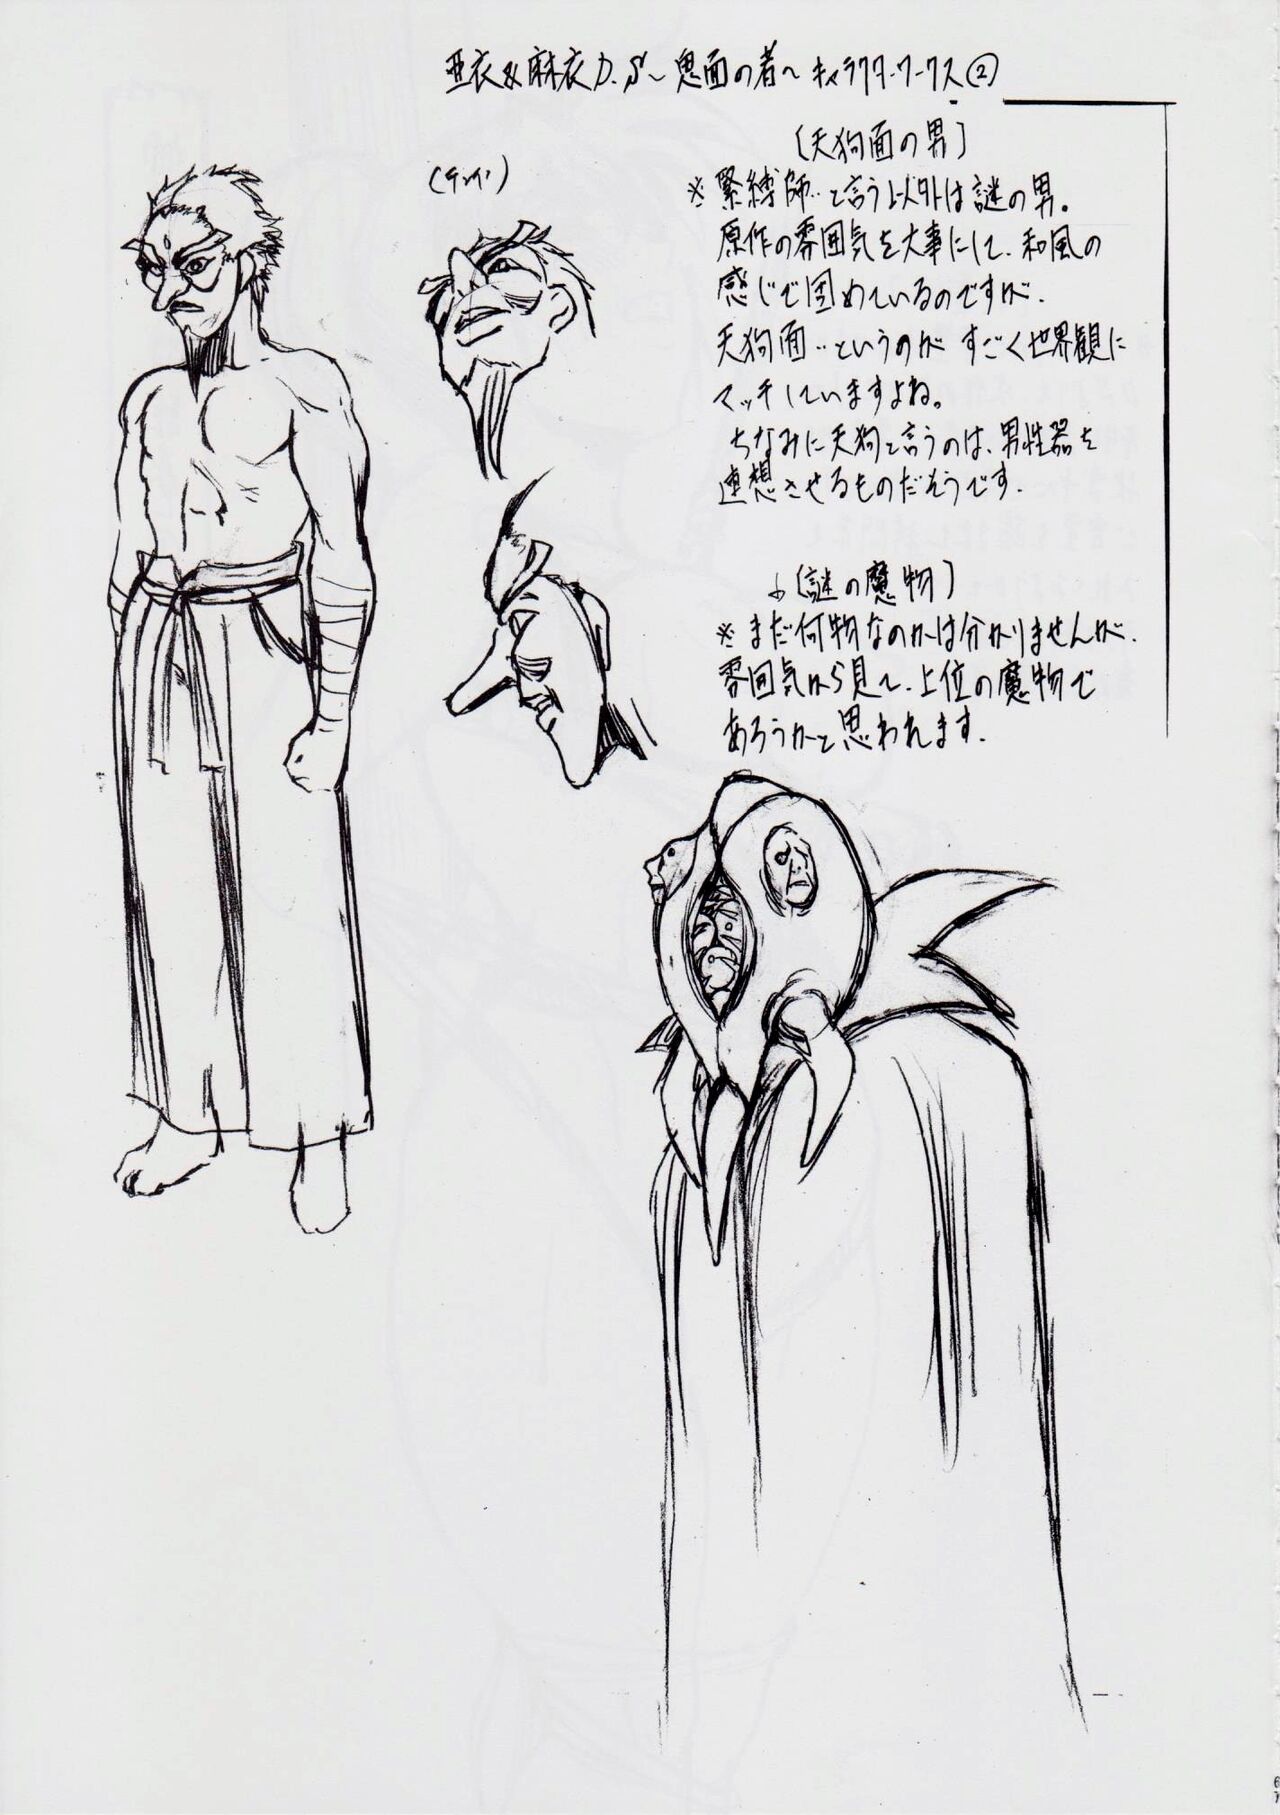 亜衣&麻衣D.S～鬼面の者～キャラクターワークス②
〔天狗面の男〕
(テング)
※緊縛師‥と言う以外は謎の男。
原作の雰囲気を大事にして、和風の
感じで固めているのですが、
天狗面‥というのが すごく世界観に
マッチしていますよね。
ちなみに天狗と言うのは、男性器を
連想させるものだそうです.
↓〔謎の魔物〕
※まだ何物なのかは分かりませんが、
雰囲気から見て、上位の魔物で
あろうかと思われます.
67